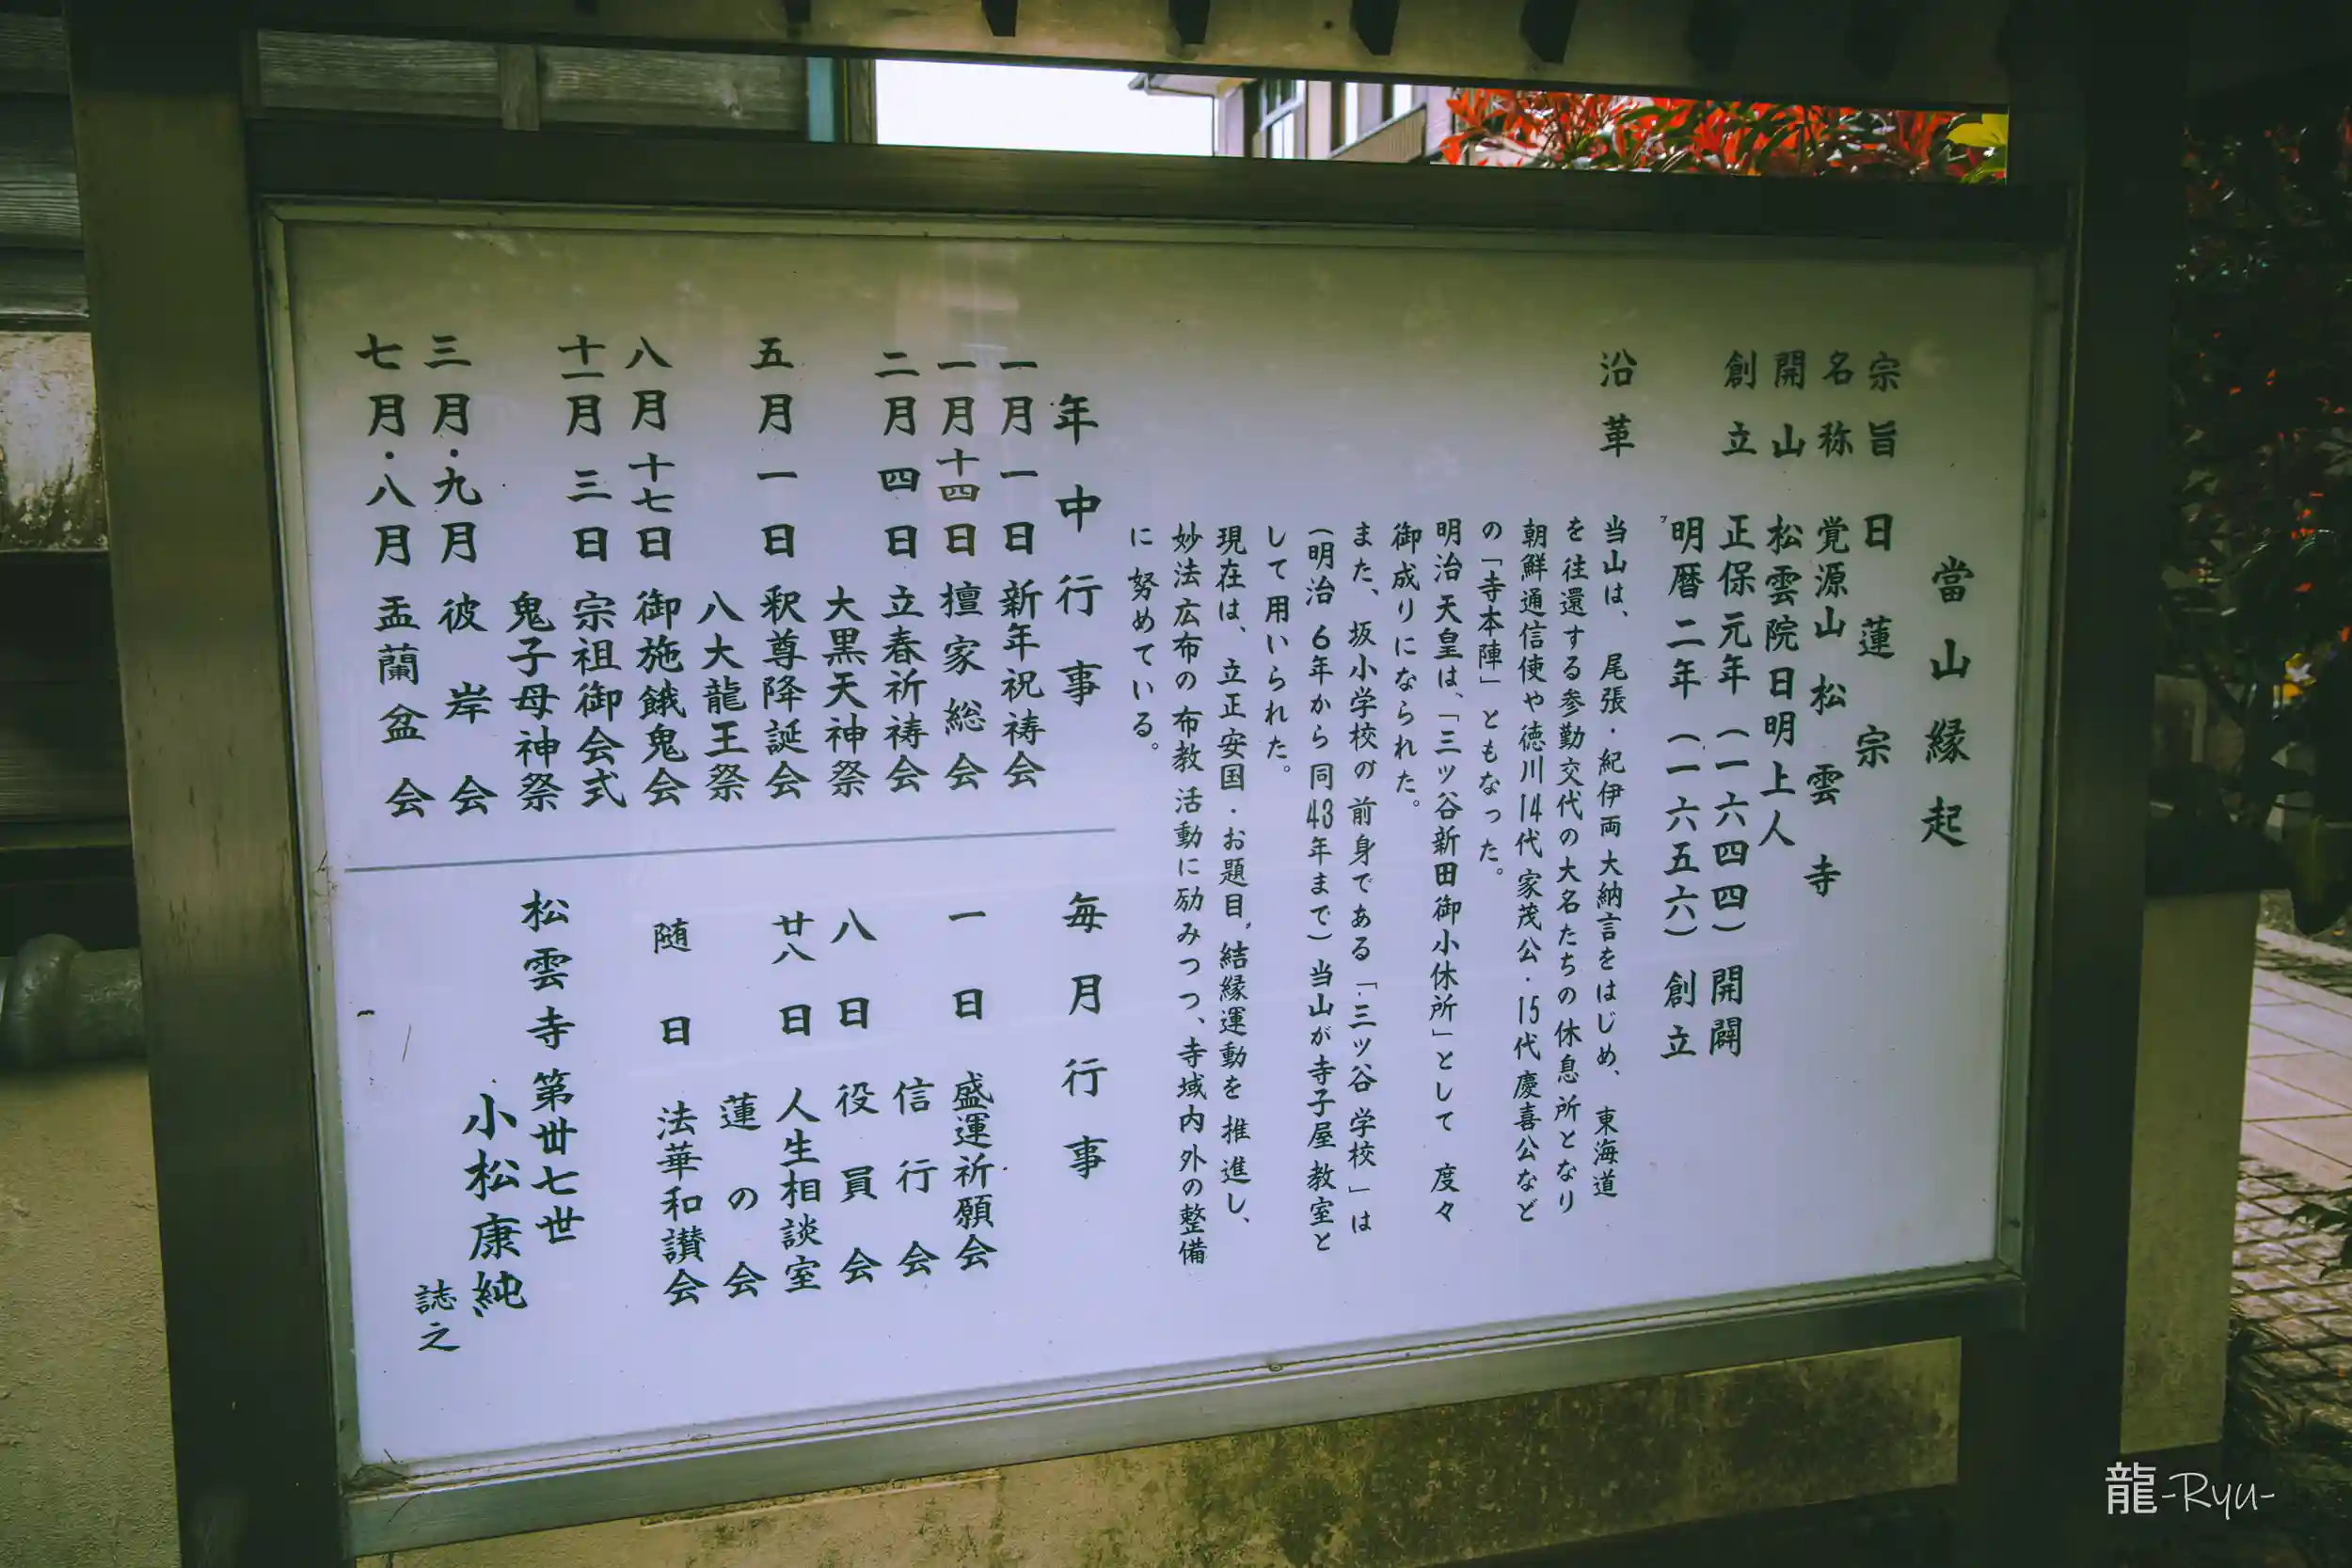 當山縁起
宗旨 日蓮宗
名称 覚源山 松雲寺
開山 松雲院日明上人
創立 正保元年(一六四四)開闢
明暦二年(一六五六)創立
沿革 当山は、尾張・紀伊両大納言をはじめ、東海道
を往還する参勤交代の大名たちの休息所となり
朝鮮通信使や徳川14代家茂公・15代慶喜公など
の「寺本陣」ともなった。
明治天皇は、「三ツ谷新田御小休所」として度々
御成りになられた。
また、坂小学校の前身である「三ツ谷学校」は
(明治6年から同43年まで)当山が寺子屋教室と
して用いられた。
現在は、立正安国・お題目、結縁運動を推進し、
妙法広布の布教活動に励みつつ、寺域内外の整備
に努めている。
年中行事
一月一日 新年祝祷会
一月十四日 檀家総会
二月四日 立春祈祷会
大黒天神祭
五月一日 釈尊降誕会
八大龍王祭
八月十七日 御施餓鬼会
十一月三日 宗祖御会式
鬼子母神祭
三月・九月 彼岸会
七月・八月 盂蘭盆会
毎月行事
一日 盛運祈願会
信行会
八日 役員会
廿八日 人生相談室
蓮の会
随日 法華和讃会
松雲寺第丗七世
小松康純
誌之
龍-Ryu-